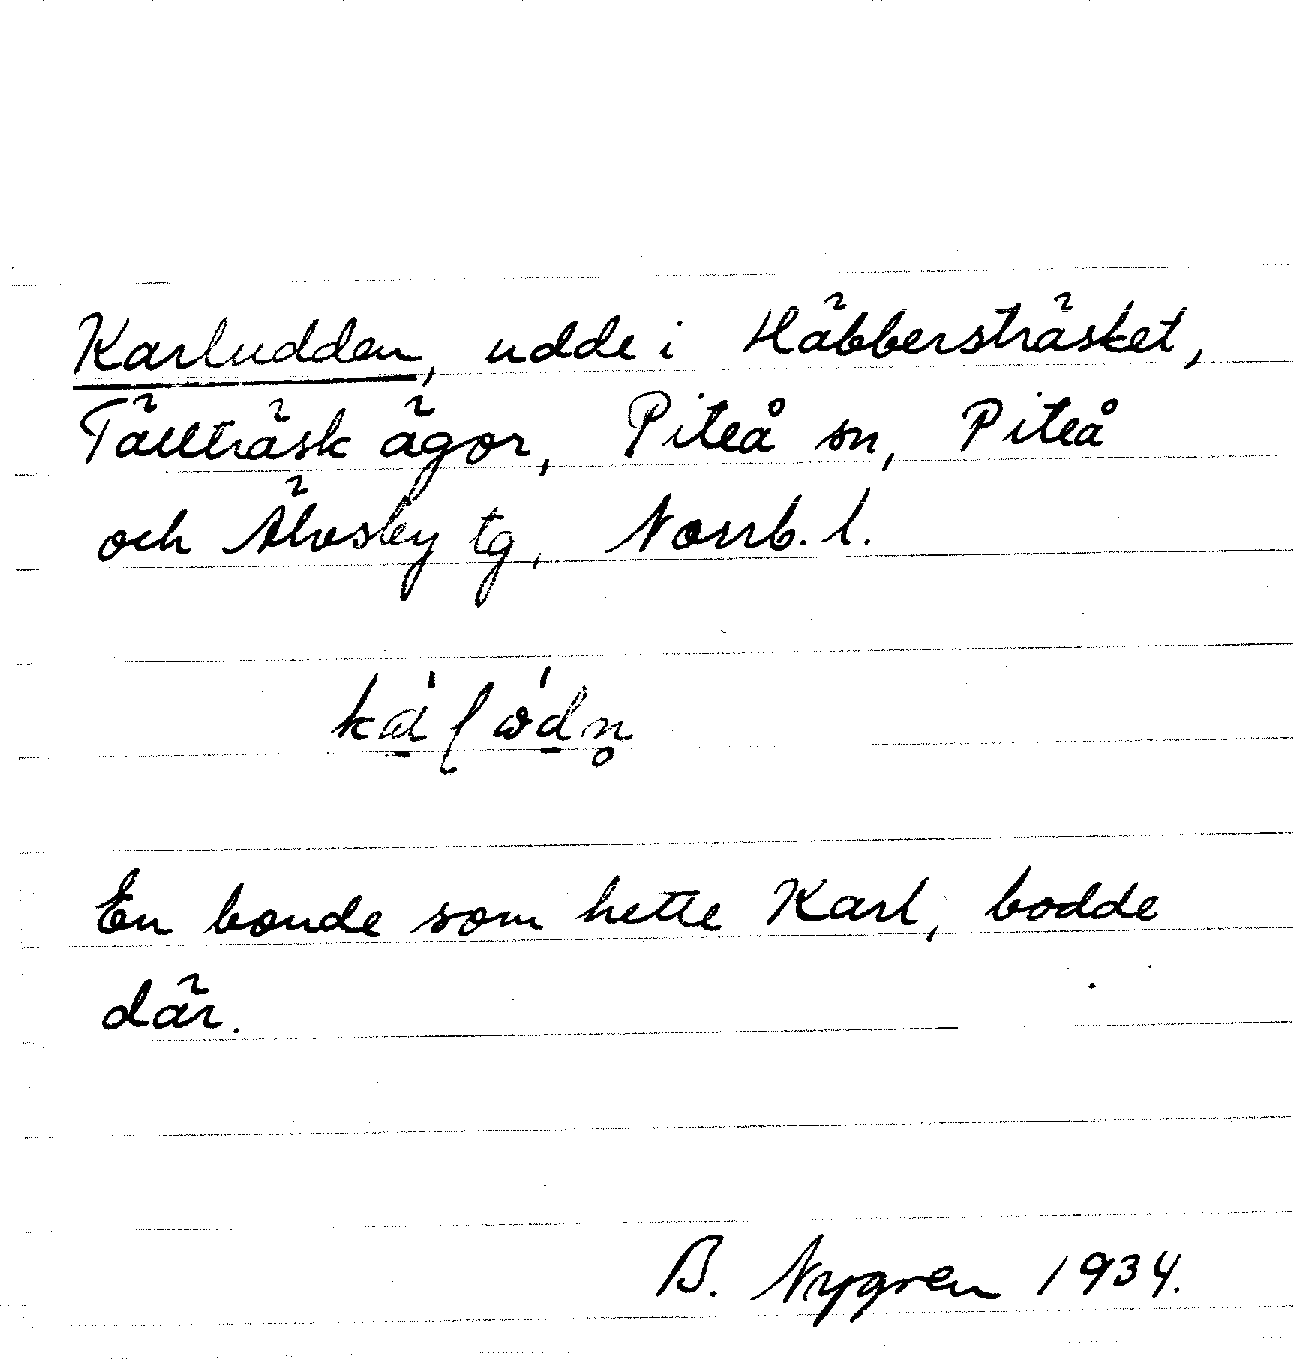 Karludden, udde i Häbbersträsket,
Tällträsk ägor, Piteå sn, Piteå
och Älvsby tg, Norrb. l.
En bonde som hette Karl, bodde
där.
B. Nygren 1934.